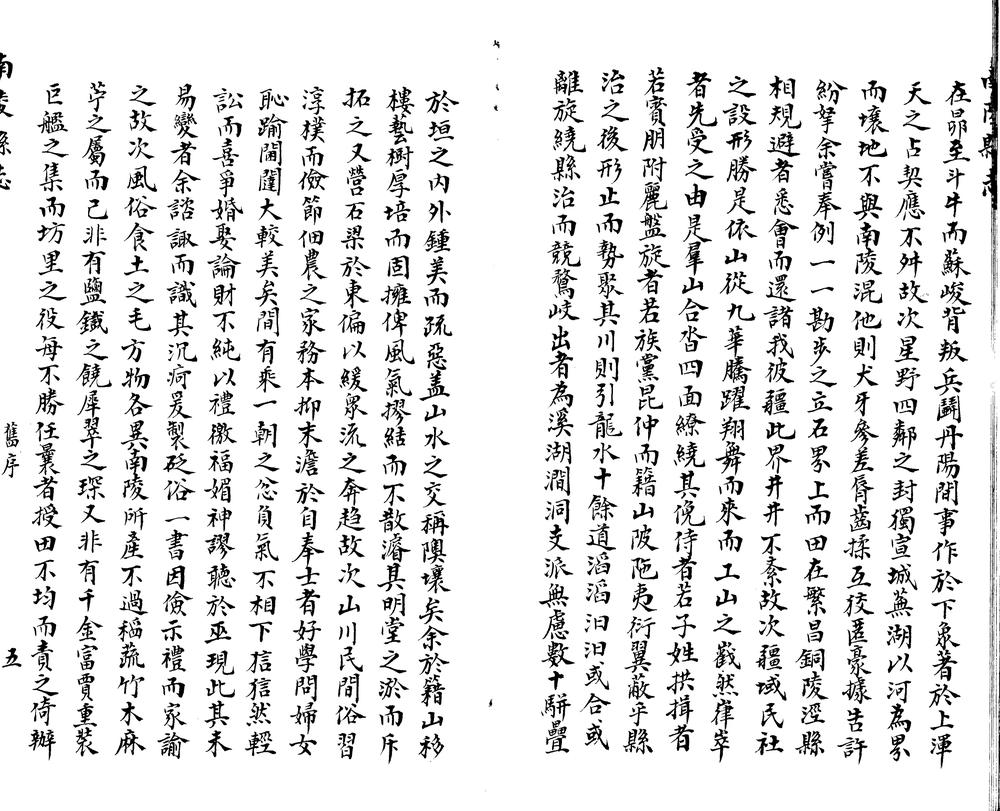 南陵縣志
在昴至斗牛而蘇峻背叛兵鬪丹陽間事作於下象著於上渾
天之占契應不舛故次星野四鄰之封獨宣城蕪湖以河為界
而壤地不與南陵混他則犬牙參差脣齒揉互狡匿豪據告訐
紛拏余嘗奉例一一勘步之立石界上而田在繁昌銅陵涇縣
相規避者悉會而還諸我彼疆此界井井不紊故次疆域民社
之設形勝是依山從九華騰躍翔舞而來而工山之戳然嵂崒
者先受之由是羣山合沓四面繚繞其俛侍者若子姓拱揖者
若賓朋附麗盤旋者若族黨昆仲而籍山陂陁夷衍翼蔽乎縣
治之後形止而勢聚其川則引龍水十餘道滔滔汩汩或合或
離旋繞縣治而競鶩岐出者為溪湖澗洞支派無慮數十駢疊
於垣之內外鍾美而疏惡盖山水之交稱隩壤矣余於籍山移
樓藝樹厚培而固擁俾風氣摎結而不散濬其明堂之淤而斥
拓之又營石梁於東偏以緩衆流之奔趋故次山川民間俗習
淳樸而儉節佃農之家務本抑末澹於自奉士者好學問婦女
恥踰閫闥大較美矣間有乘一朝之忿負氣不相下狺狺然輕
訟而喜爭婚娶論財不純以禮徼福媚神謬聽於巫現此其未
易變者余諮諏而識其沉疴爰製砭俗一書因儉示禮而家諭
之故次風俗食土之毛方物各異南陵所產不過稻蔬竹木麻
苧之屬而已非有鹽鐵之饒犀翠之琛又非有千金富賈重裝
巨艦之集而坊里之役每不勝任曩者授田不均而責之倚辦
南陵縣志
舊序
五